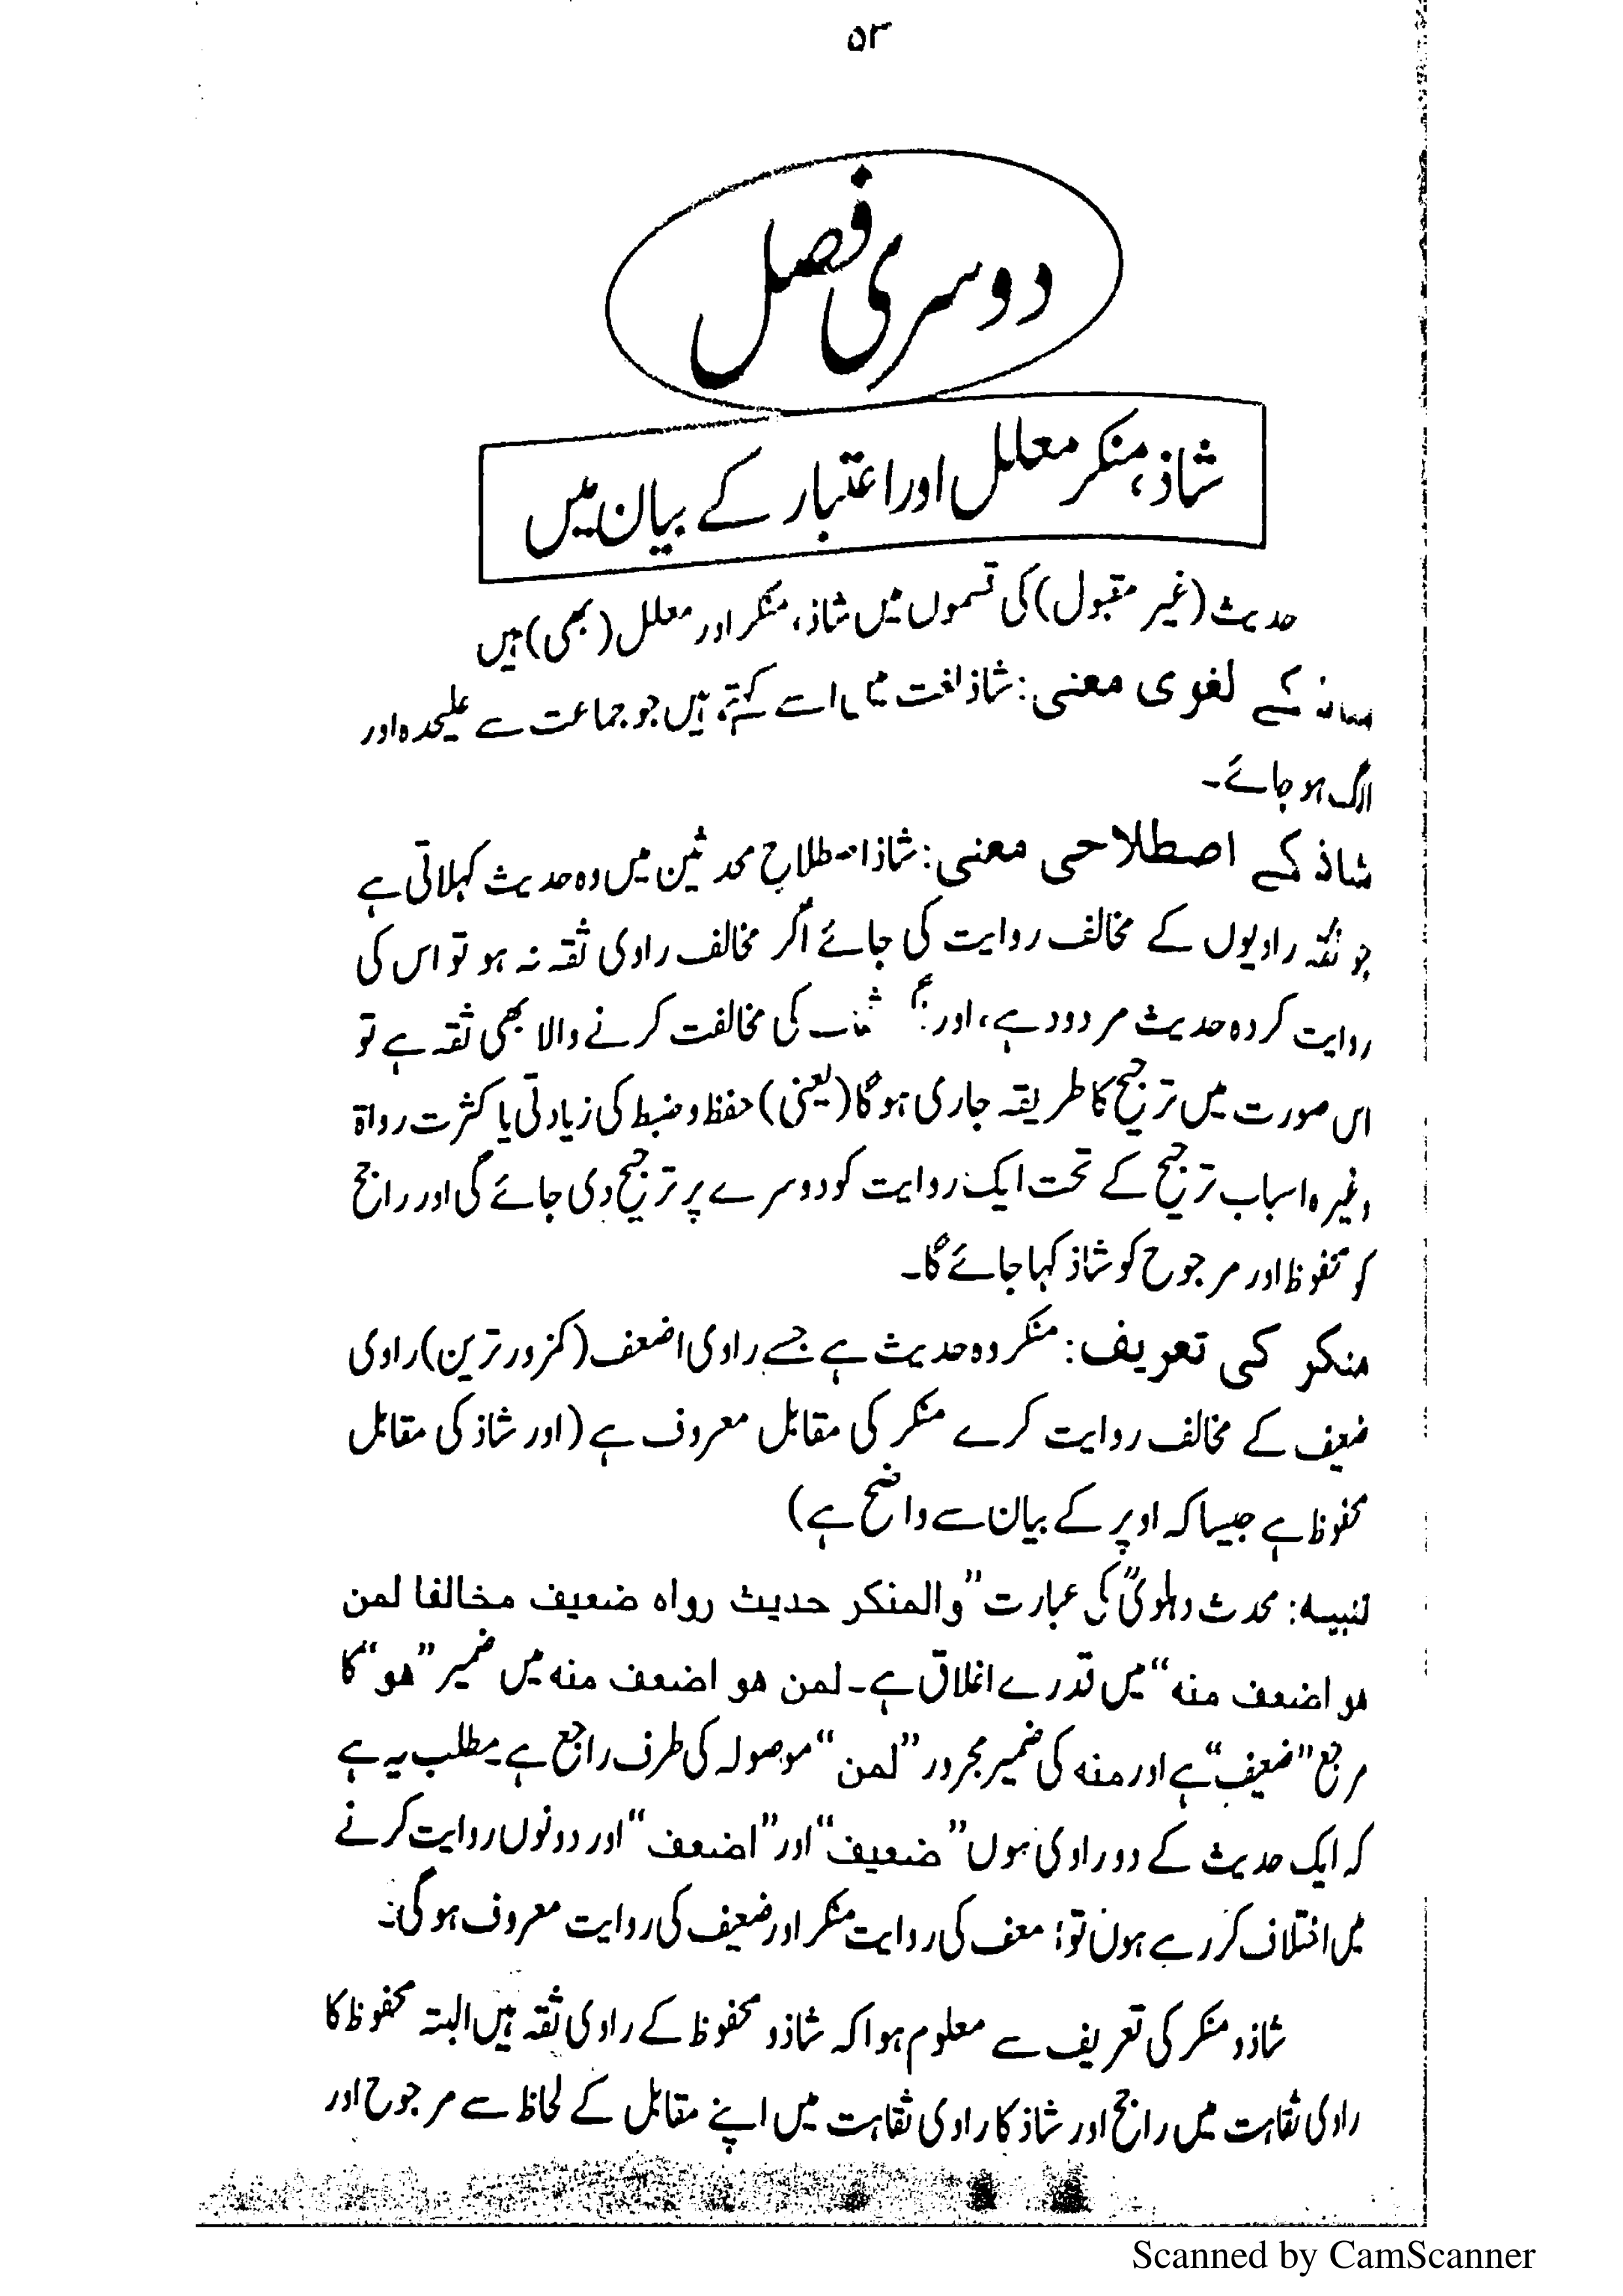 ۵۳
دوسری فصل
شاذ، منکر معلل اور اعتبار کے بیان میں
حدیث (غیر مقبول) کی قسموں میں شاذ، منکر اور معلل (بھی) ہیں
کے لغوی معنی: شاذ لغت میں اسے کہتے ہیں جو جماعت سے علیحدہ اور
الگ ہو جائے۔
شاذ کے اصطلاحی معنی: شاذ اصطلاح محدثین میں وہ حدیث کہلاتی ہے
جو ثقہ راویوں کے مخالف روایت کی جائے اگر مخالف راوی ثقہ نہ ہو تو اس کی
روایت کردہ حدیث مردود ہے، اور کی مخالفت کرنے والا بھی ثقہ ہے تو
اس صورت میں ترجیح کا طریقہ جاری ہوگا (یعنی) حفظ و ضبط کی زیادتی یا کثرت رواۃ
وغیرہ اسباب ترجیح کے تحت ایک روایت کو دوسرے پر ترجیح دی جائے گی اور راجح
کو محفوظ اور مرجوح کو شاذ کہا جائے گا۔
منکر کی تعریف: منکر وہ حدیث ہے جسے راوی اضعف (کمزور ترین) راوی
ضعیف کے مخالف روایت کرے منکر کی مقابل معروف ہے (اور شاذ کی مقابل
محفوظ ہے جیسا کہ اوپر کے بیان سے واضح ہے)
تنبیہ: محدث دہلویؒ کی عبارت ”والمنکر حدیث رواہ ضعیف مخالفا لمن
ھو اضعف منہ“ میں قدرے اغلاق ہے۔ لمن ھو اضعف منہ میں ضمیر ”ھو“ کا
مرجع ”ضعیف“ ہے اور منہ کی ضمیر مجرور ”لمن“ موصولہ کی طرف راجع ہے۔ مطلب یہ ہے
کہ ایک حدیث کے دو راوی ہوں ”ضعیف“ اور ”اضعف“ اور دونوں روایت کرنے
میں اختلاف کر رہے ہوں تو اضعف کی روایت منکر اور ضعیف کی روایت معروف ہوگی۔
شاذ و منکر کی تعریف سے معلوم ہوا کہ شاذ و محفوظ کے راوی ثقہ ہیں البتہ محفوظ کا
راوی ثقاہت میں راجح اور شاذ کا راوی ثقاہت میں اپنے مقابل کے لحاظ سے مرجوح اور
Scanned by CamScanner